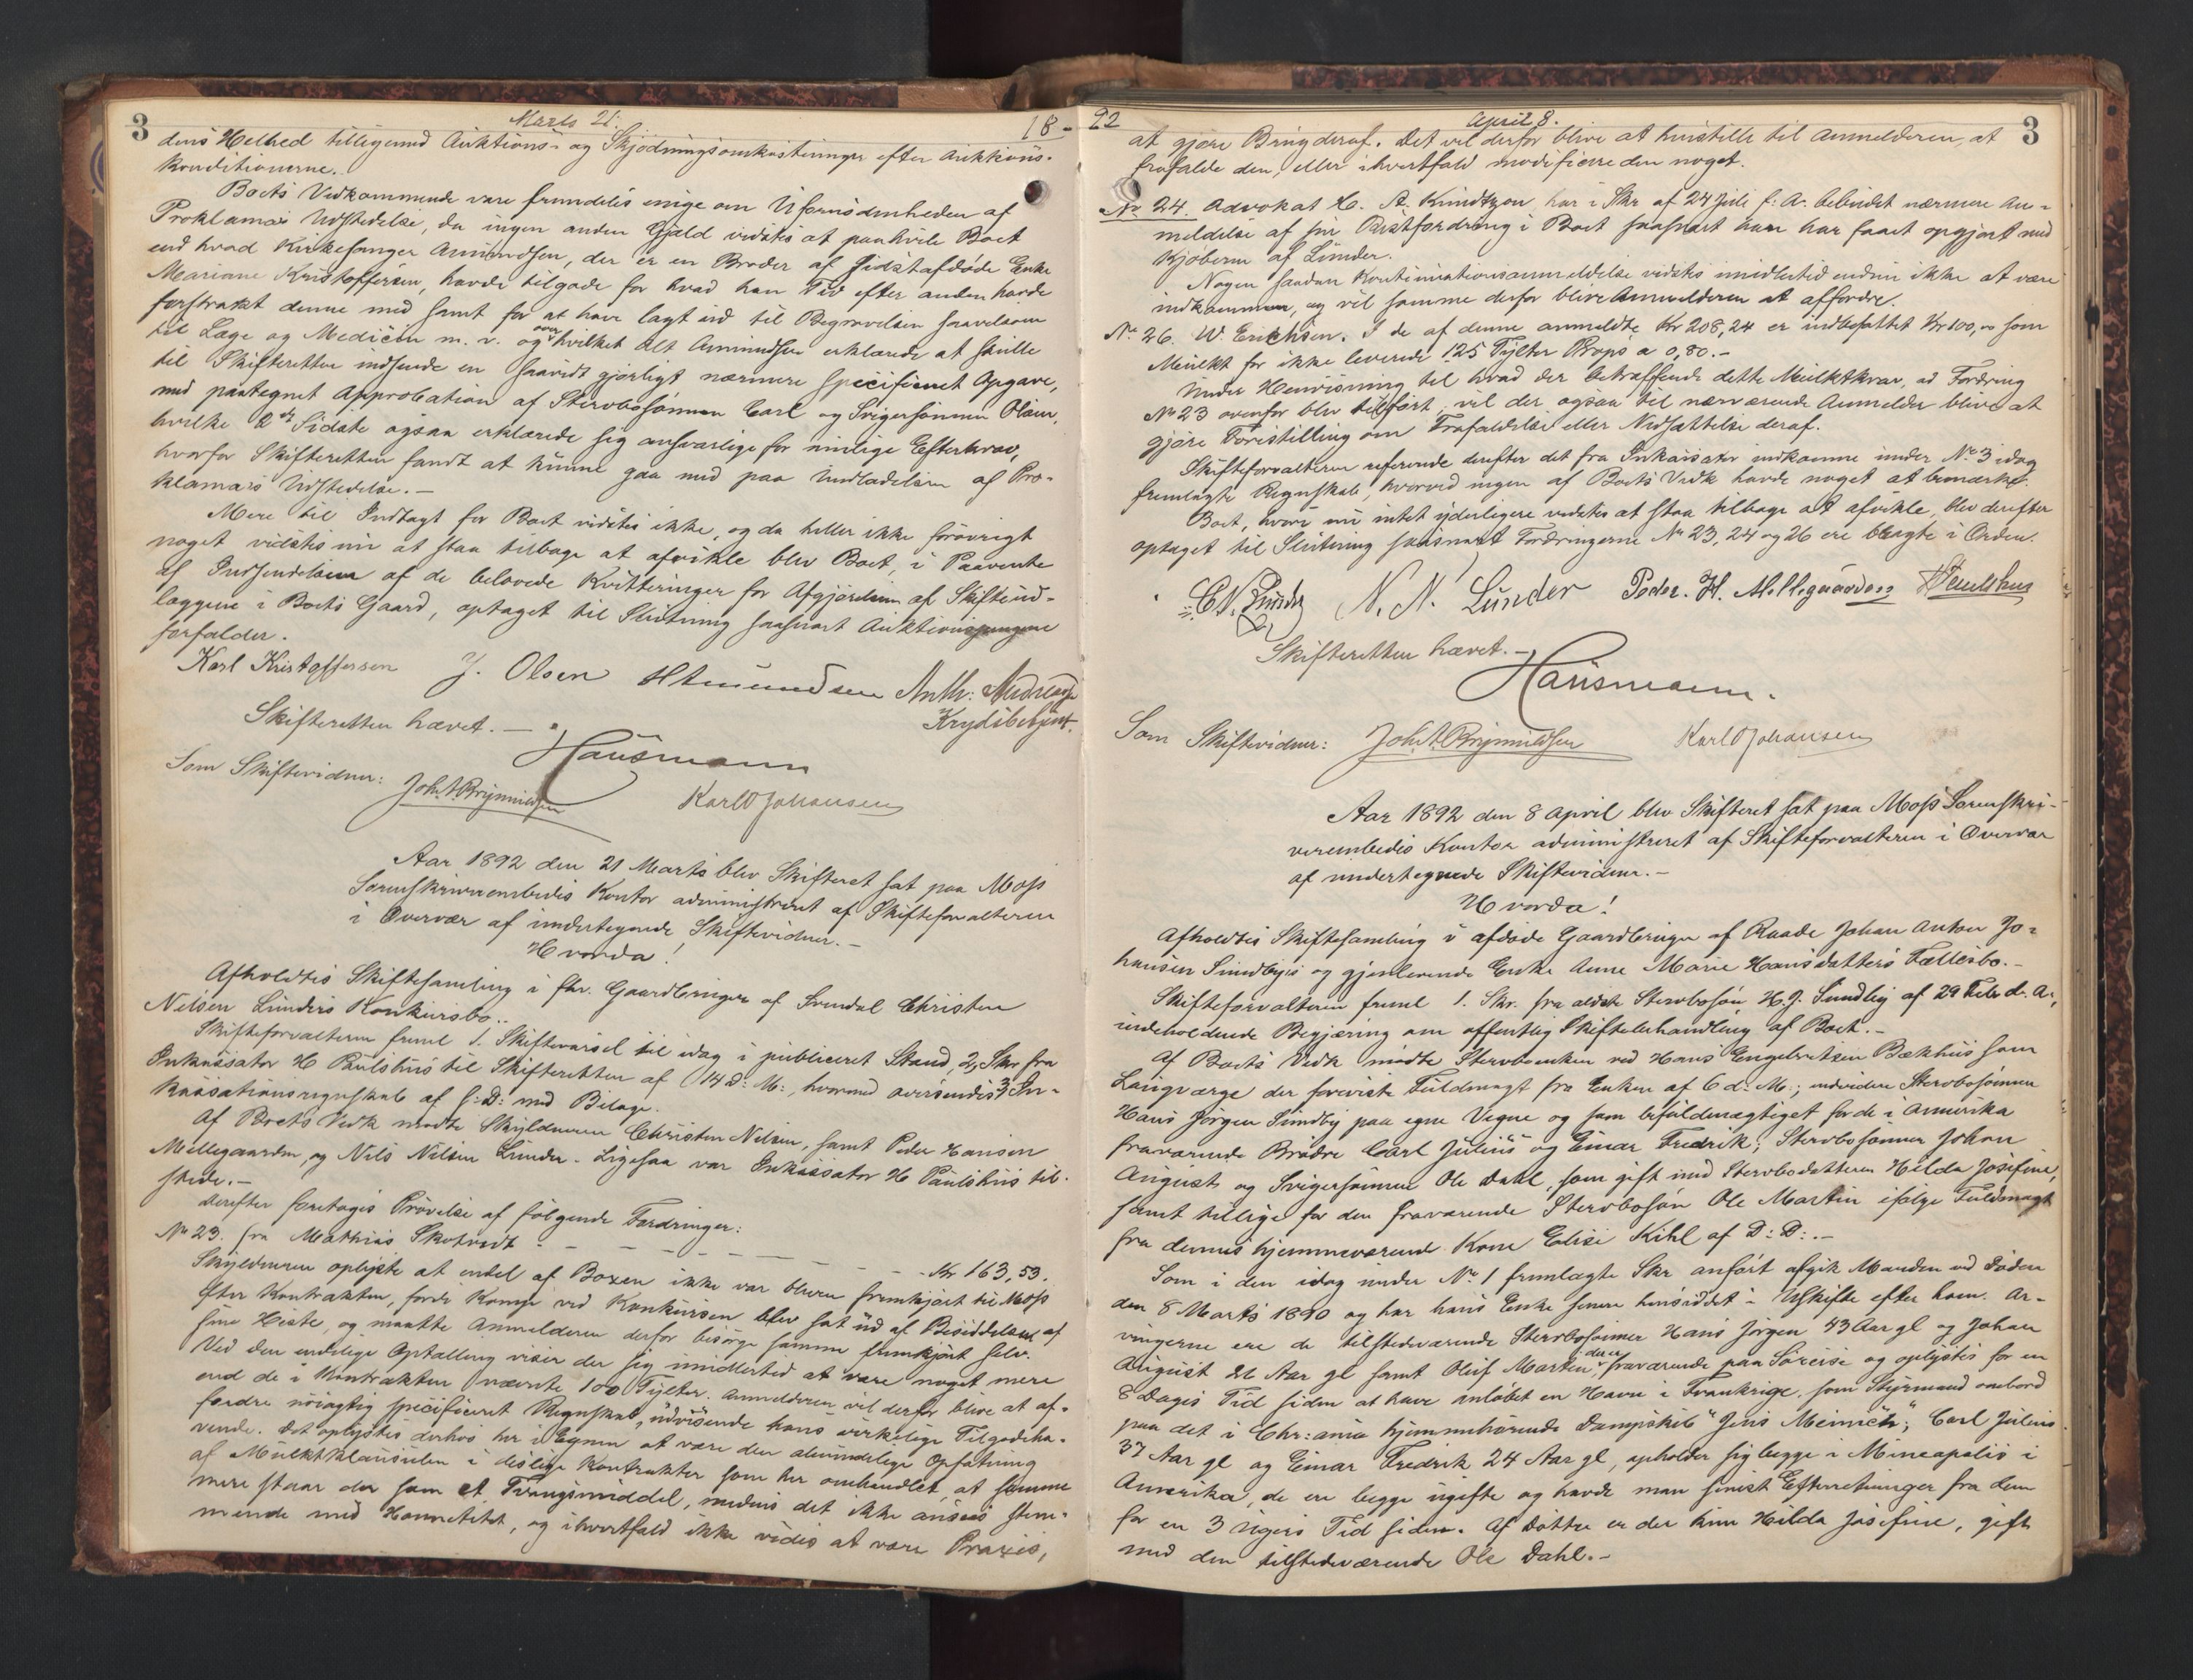 3
Marts 21.
18-
dens Helhed tilligemed Auktions- og Skjødningsomkostninger efter Auktions-
konditionerne.
Boets Vedkommende vare fremdeles enige om Ufornødenheden af
Proklamas Udstedelse, da ingen anden Gjæld vidstes at paahvile Boet
end hvad Kirkesanger Amundsen, der er en Broder af sidstafdøde Enke
Mariane Kristoffersen, havde tilgode for hvad han Tid efter anden havde
forstrakt denne med samt for at have lagt ud til Begravelsen saavelsom
til Læge og Medicin m. v. og over hvilket alt Amundsen erklærede at skulle
til Skifteretten indsende en saavidt gjørligt nærmere specificeret Opgave,
med paategnet Approbation af Stervbosønnen Carl og Svigersønnen Olsen,
hvilke 2de Sidste ogsaa erklærede sig ansvarlige for mulige Efterkrav,
hvorfor Skifteretten fandt at kunne gaa med paa Undladelsen af Pro-
klamas Udstedelse.-
Mere til Indtægt for Boet vidstes ikke, og da heller ikke forøvrigt
noget vidstes nu at staa tilbage at afvikle blev Boet, i Paavente
af Indsendelsen af de belovede Kvitteringer for Afgjørelsen af Skifteud-
læggene i Boets Gaard, optaget til Slutning saasnart Auktionspengene
forfalder.
Karl Kristoffersen J. Olsen HAmundsen Anth: Andreas
Krydsbetjent.
Skifteretten hævet.-
Hausmann
Som Skiftevidner: Joh. A. Brynnildsen Karl O Johansen
Aar 1892 den 21 Marts blev Skifteret sat paa Moss
Sorenskriverembedes Kontor administreret af Skifteforvalteren
i Overvær af undertegnede Skiftevidner.-
Hvorda!
Afholdtes Skiftesamling i fhv. Gaardbruger af Svendal Christen
Nilsen Lunders Konkursbo..
Skifteforvalteren freml 1. Skiftevarsel til idag i publiceret Stand, 2, Skr fra
Inkassator H Paulshus til Skifteretten af 14 D: M:, hvormed oversendes 3, In-
kassationsregnskab af s: D: med Bilage.
Af Boets Vedk mødte Skyldneren Christen Nilsen, samt Peder Hansen
Mellegaarden, og Nils Nilsen Lunder. Ligesaa var Inkassator H Paulshus til-
stede.-
Derefter foretoges Prøvelse af følgende Fordringer:
No 23. fra Mathias Skotvedt - - - - - - Kr 163,53.
Skyldneren oplyste at endel af Boxen ikke var bleven fremkjørt til Moss
efter Kontrakten, fordi Komp: ved Konkursen blev sat ud af Besiddelsen af
sine Heste, og maatte Anmelderen derfor besørge samme fremkjørt selv.
Ved den endelige Optælling viser der sig imidlertid at være noget mere
end de i Kontrakten nævnte 100 Tylter. Anmelderen vil derfor blive at af-
fordre nøiagtig specificeret Regnskab, udvisende hans virkelige Tilgodeha-
vende. Det oplystes derhos her i Egnen at være den almindelige Opfatning
af Mulktklausulen i deslige Kontrakter som her omhandlet, at samme
mere staar der som et Tvangsmiddel, medens det ikke ansees stem-
mende med Honnetitet, og ihvertfald ikke vides at være Praxis,
92
April 8.
3
at gjøre Brug deraf. Det vil derfor blive at henstille til Anmelderen, at
frafalde den, eller ihvertfald modificere den noget.
No 24. Advokat C. A. Knudtzon har i Skr af 24 Juli f: A. bebudet nærmere An-
meldelse af sin Restfordring i Boet saasnart han har faaet opgjort med
Kjøberen af Lunder.
Nogen saadan Kontinuationsanmeldelse vidstes imidlertid endnu ikke at være
indkommen, og vil samme derfor blive Anmelderen at affordre.
No 26. W. Erichsen. I de af denne anmeldte Kr 208,24 er indbefattet Kr 100,00 som
Mulkt for ikke leverede 125 Tylter Props a 0,80.-
Under Henvisning til hvad der betræffende dette Mulktkrav, ad Fordring
No 23 ovenfor blev tilført, vil der ogsaa til nærværende Anmelder blive at
gjøre Forestilling om Frafaldelse eller Nedsættelse deraf.
Skifteforvalteren refererede derefter det fra Inkassator indkomne under No 3 idag
fremlagte Regnskab, hvorved ingen af Boets Vedk havde noget at bemærke.
Boet, hvori nu intet yderligere vidstes at staa tilbage at afvikle, blev derefter
optaget til Slutning saasnart Fordringerne No 23, 24 og 26 ere bragte i Orden.
C N. Lunder N. N. Lunder Peder. H. Mellegaarden HPaulshus
Skifteretten hævet.-
Hausmann.
Som Skiftevidner: Joh. A. Brynnildsen Karl O Johansen
Aar 1892 den 8 April blev Skifteret sat paa Moss Sorenskri-
verembedes Kontor administreret af Skifteforvalteren i Overvær
af undertegnede Skiftevidner.-
Hvorda!
Afholdtes Skiftesamling i afdøde Gaardbruger af Raade Johan Anton Jo-
hansen Sundbyes og gjenlevende Enke Anne Marie Hansdatters Fællesbo.-
Skifteforvalteren freml 1. Skr. fra ældste Stervbosøn H. J. Sundby af 29 Febr d. A.,
indeholdende Begjæring om offentlig Skiftebehandling af Boet.-
Af Boets Vedk mødte Stervboenken ved Hans Engebretsen Bækhus som
Laugværge der foreviste Fuldmagt fra Enken af 6 d: M.; endvidere Stervbosønnen
Hans Jørgen Sundby paa egne Vegne og som befuldmægtiget for de i Amerika
fraværende Brødre Carl Julius og Einar Fredrik; Stervbosønnen Johan
August, og Svigersønnen Ole Dahl, som gift med Stervbodatteren Hilda Josefine,
samt tillige for den fraværende Stervbosøn Ole Martin ifølge Fuldmagt
fra dennes hjemmeværende Kone Elise Kihl af D: D:.-
Som i den idag under No 1 fremlagte Skr anført afgik Manden ved Døden
den 8 Marts 1890 og har hans Enke senere hensiddet i Uskifte efter ham. Ar-
vingerne ere de tilstedeværende Stervbosønner Hans Jørgen 43 Aar gl og Johan
August 26 Aar gl samt Oluf Martin, der er fraværende paa Søreise og oplystes for en
8 Dages Tid siden at have anløbet en Havn i Frankrige, som Styrmand ombord
paa det i Chr:ania hjemmehørende Dampskib "Jens Meinich"; Carl Julius
37 Aar gl og Einar Fredrik 24 Aar gl, opholder sig begge i Mineapolis i
Amerika, de ere begge ugifte og havde man senest Efterretninger fra dem
for en 3 Ugers Tid siden. Af Døttre er der kun Hilda Josefine, gift
med den tilstedeværende Ole Dahl.-